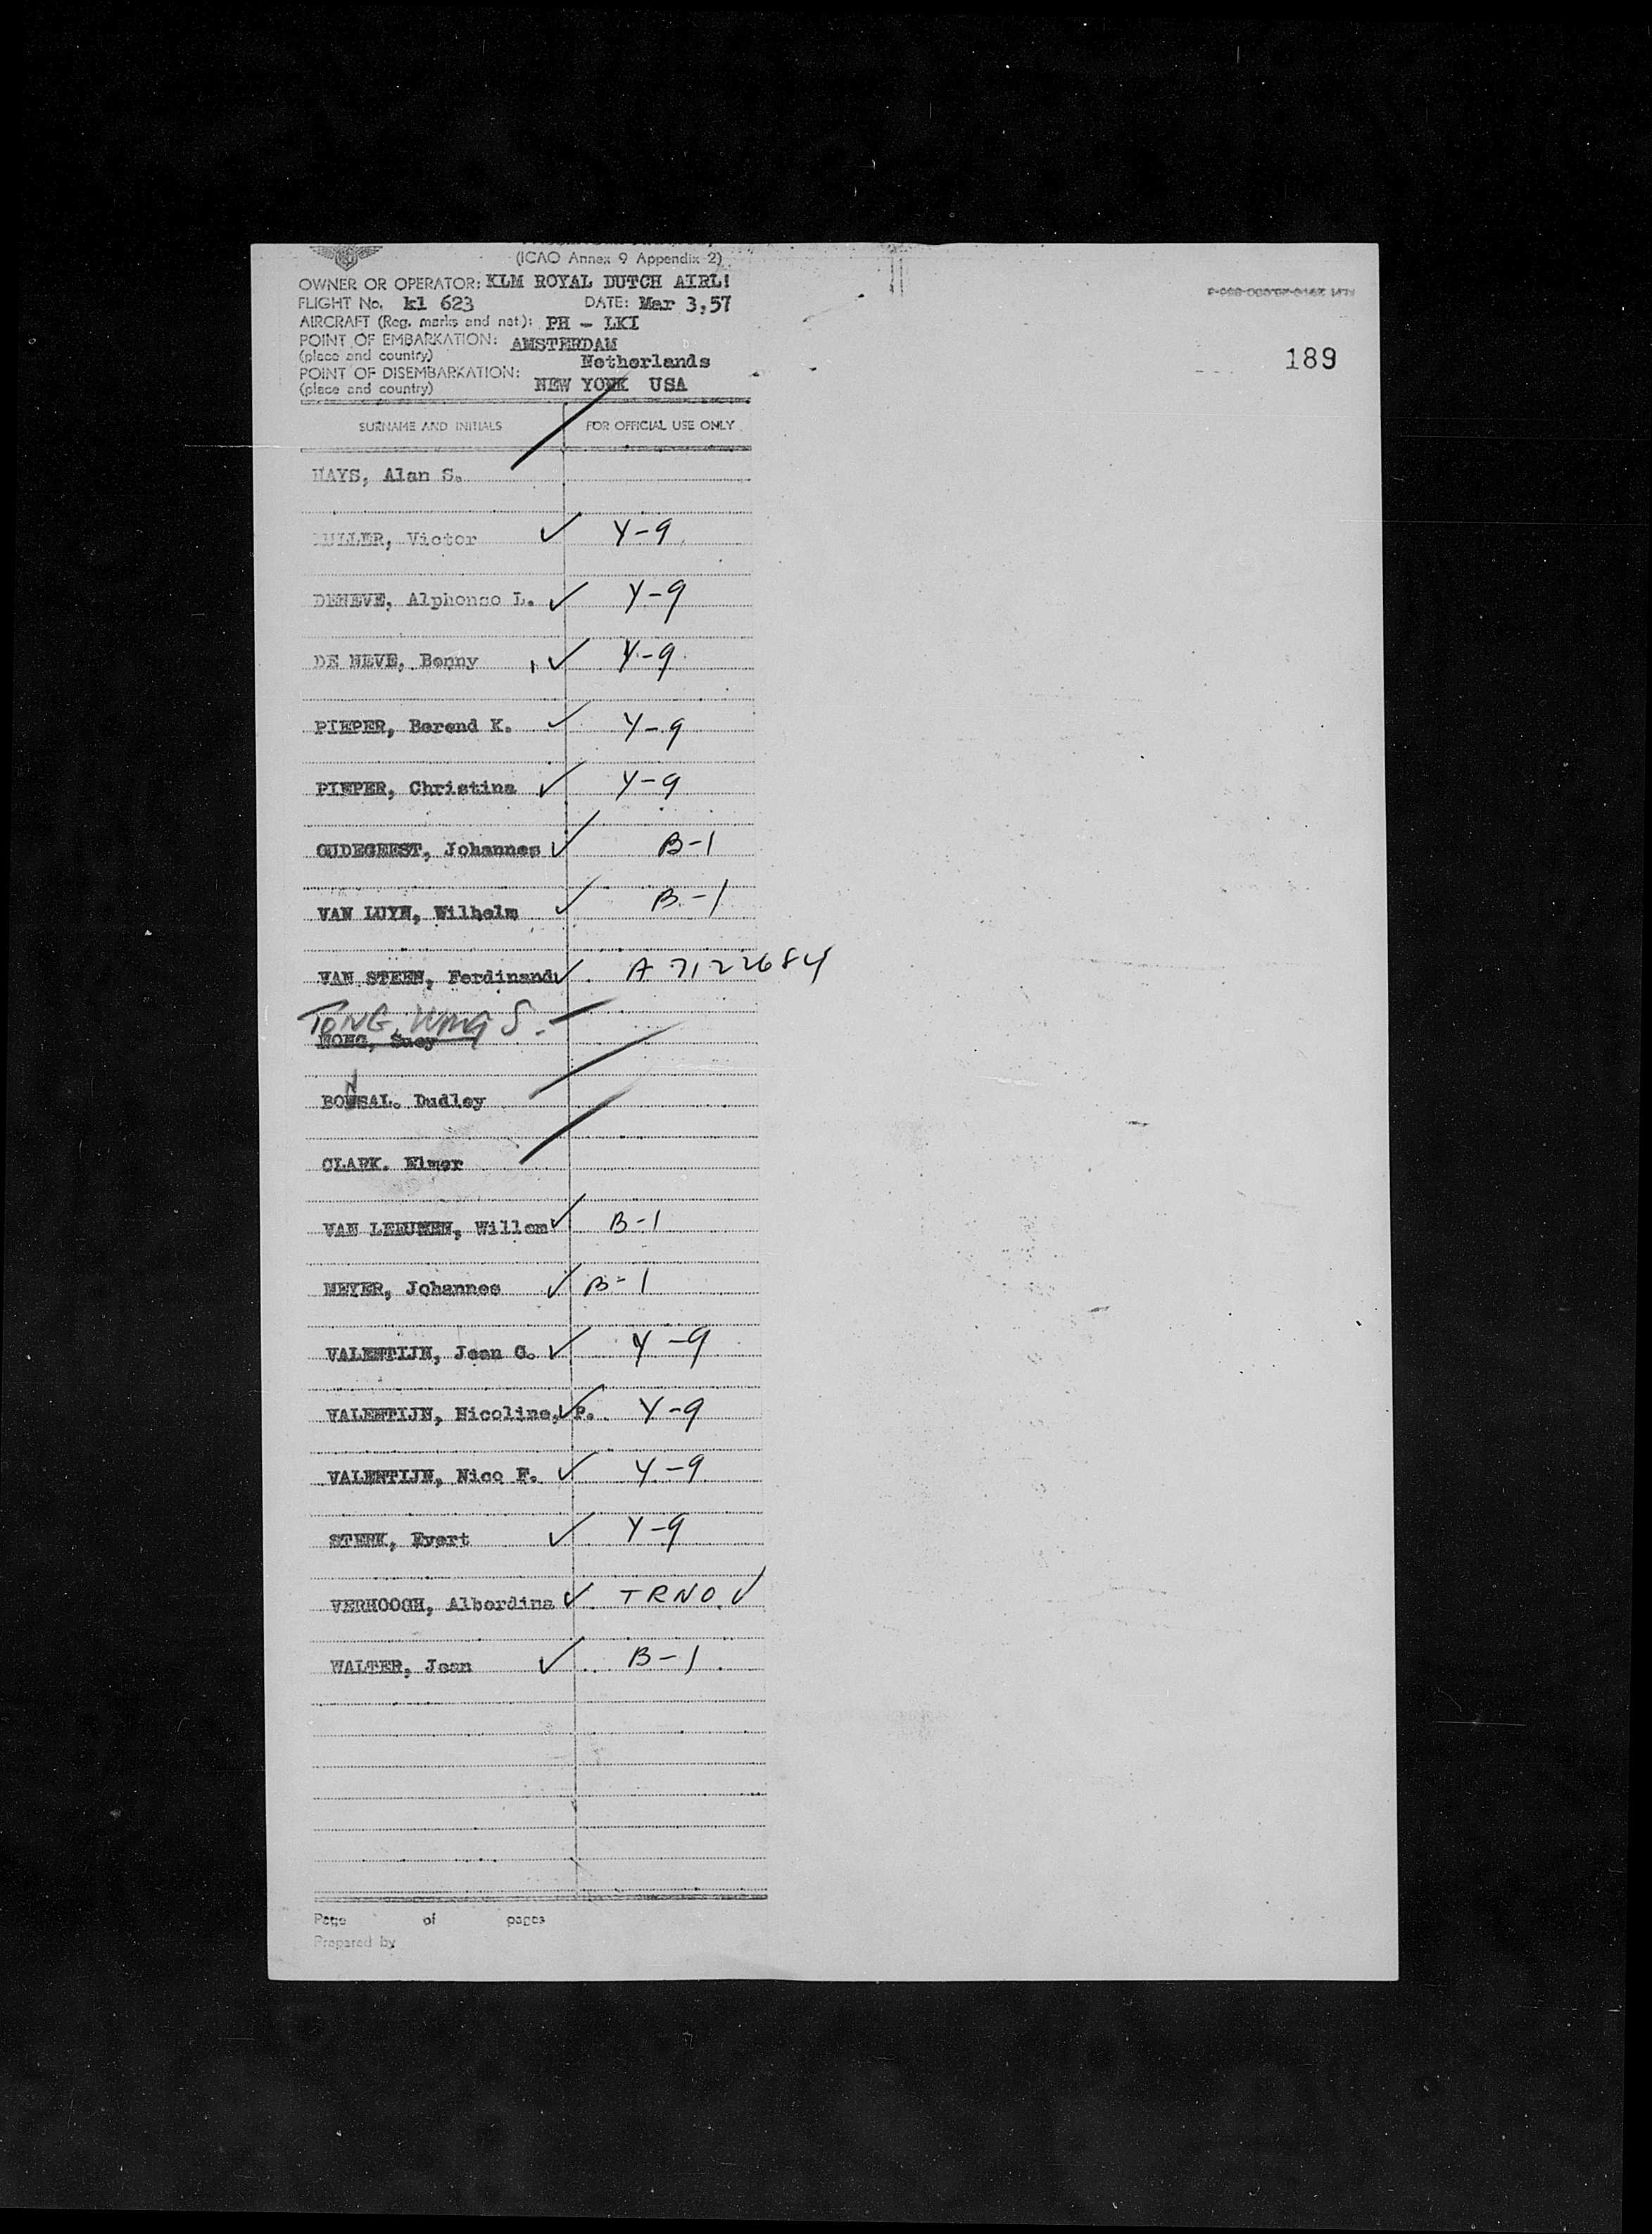 (ICAO Annex 9 Appendix 2)
OWNER OR OPERATOR: KLM ROYAL DUTCH AIRLI
FLIGHT No. kl 623 DATE: Mar 3,57
AIRCRAFT (Reg. marks and nat): PH - LKI
POINT OF EMBARKATION: AMSTERDAM
(place and country) Netherlands
189
POINT OF DISEMBARKATION:
(place and country) NEW YORK USA
SURNAME AND INITIALS FOR OFFICIAL USE ONLY
HAYS, Alan S.
Victor ✓ Y-9
DENEVE, Alphonso L. ✓ Y-9
DE NEVE, Benny ✓ Y-9
PIEPER, Berend K. ✓ Y-9
PIEPER, Christina ✓ Y-9
OUDEGEEST, Johannes ✓ B-1
VAN LUYN, Wilhelm ✓ B-1
VAN STEEN, Ferdinand ✓ A 7122684
TONG, Wing S.
Suey
N
BOWSAL. Dudley
CLARK. Elmer
VAN LEEUWEN, Willem ✓ B-1
MEYER, Johannes ✓ B-1
VALENTIJN, Jean G. ✓ Y-9
VALENTIJN, Nicoline, P. ✓ Y-9
VALENTIJN, Nico F. ✓ Y-9
STERK, Evert ✓ Y-9
VERHOOGH, Alberdina ✓ TRNO. ✓
WALTER, Jean ✓ B-1
Page of pages
Prepared by